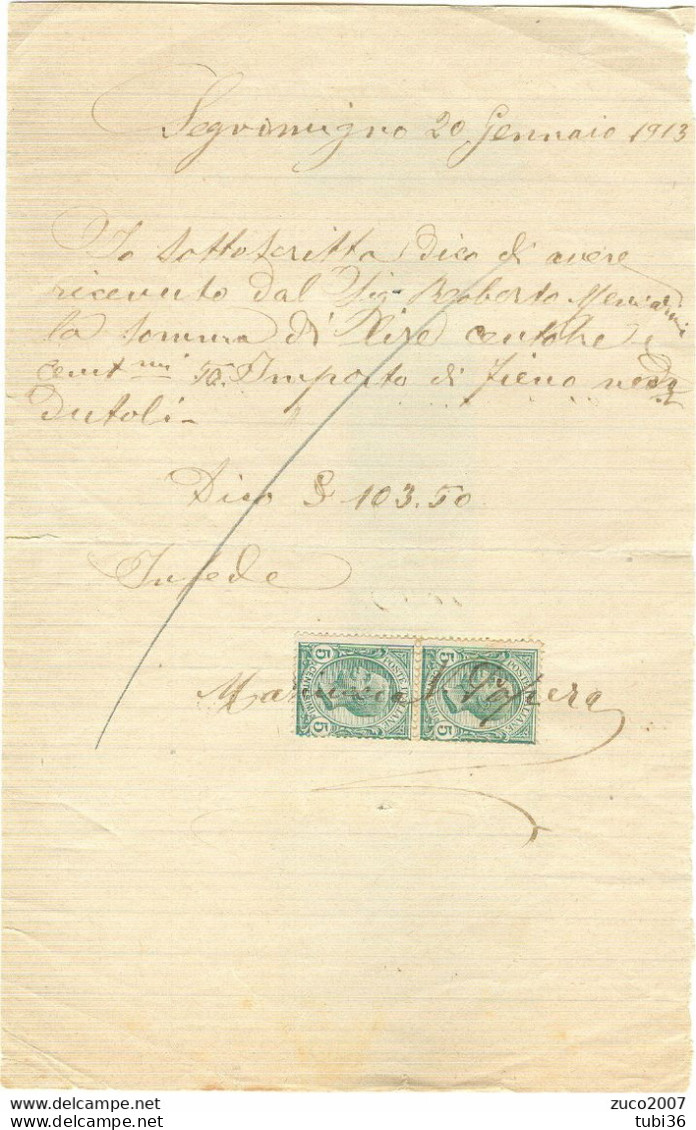 Segromigno 20 Gennaio 1913
Io sottoscritta Dico di avere
ricevuto dal Sig. Roberto
la somma di Lire centotre e
cent mi 50. Importo di fieno
dutoli-
Dico £ 103.50
In fede
POSTE ITALIANE 5 CENTESIMI 5
POSTE ITALIANE 5 CENTESIMI 5
www.delcampe.net
zuco2007
tubi36